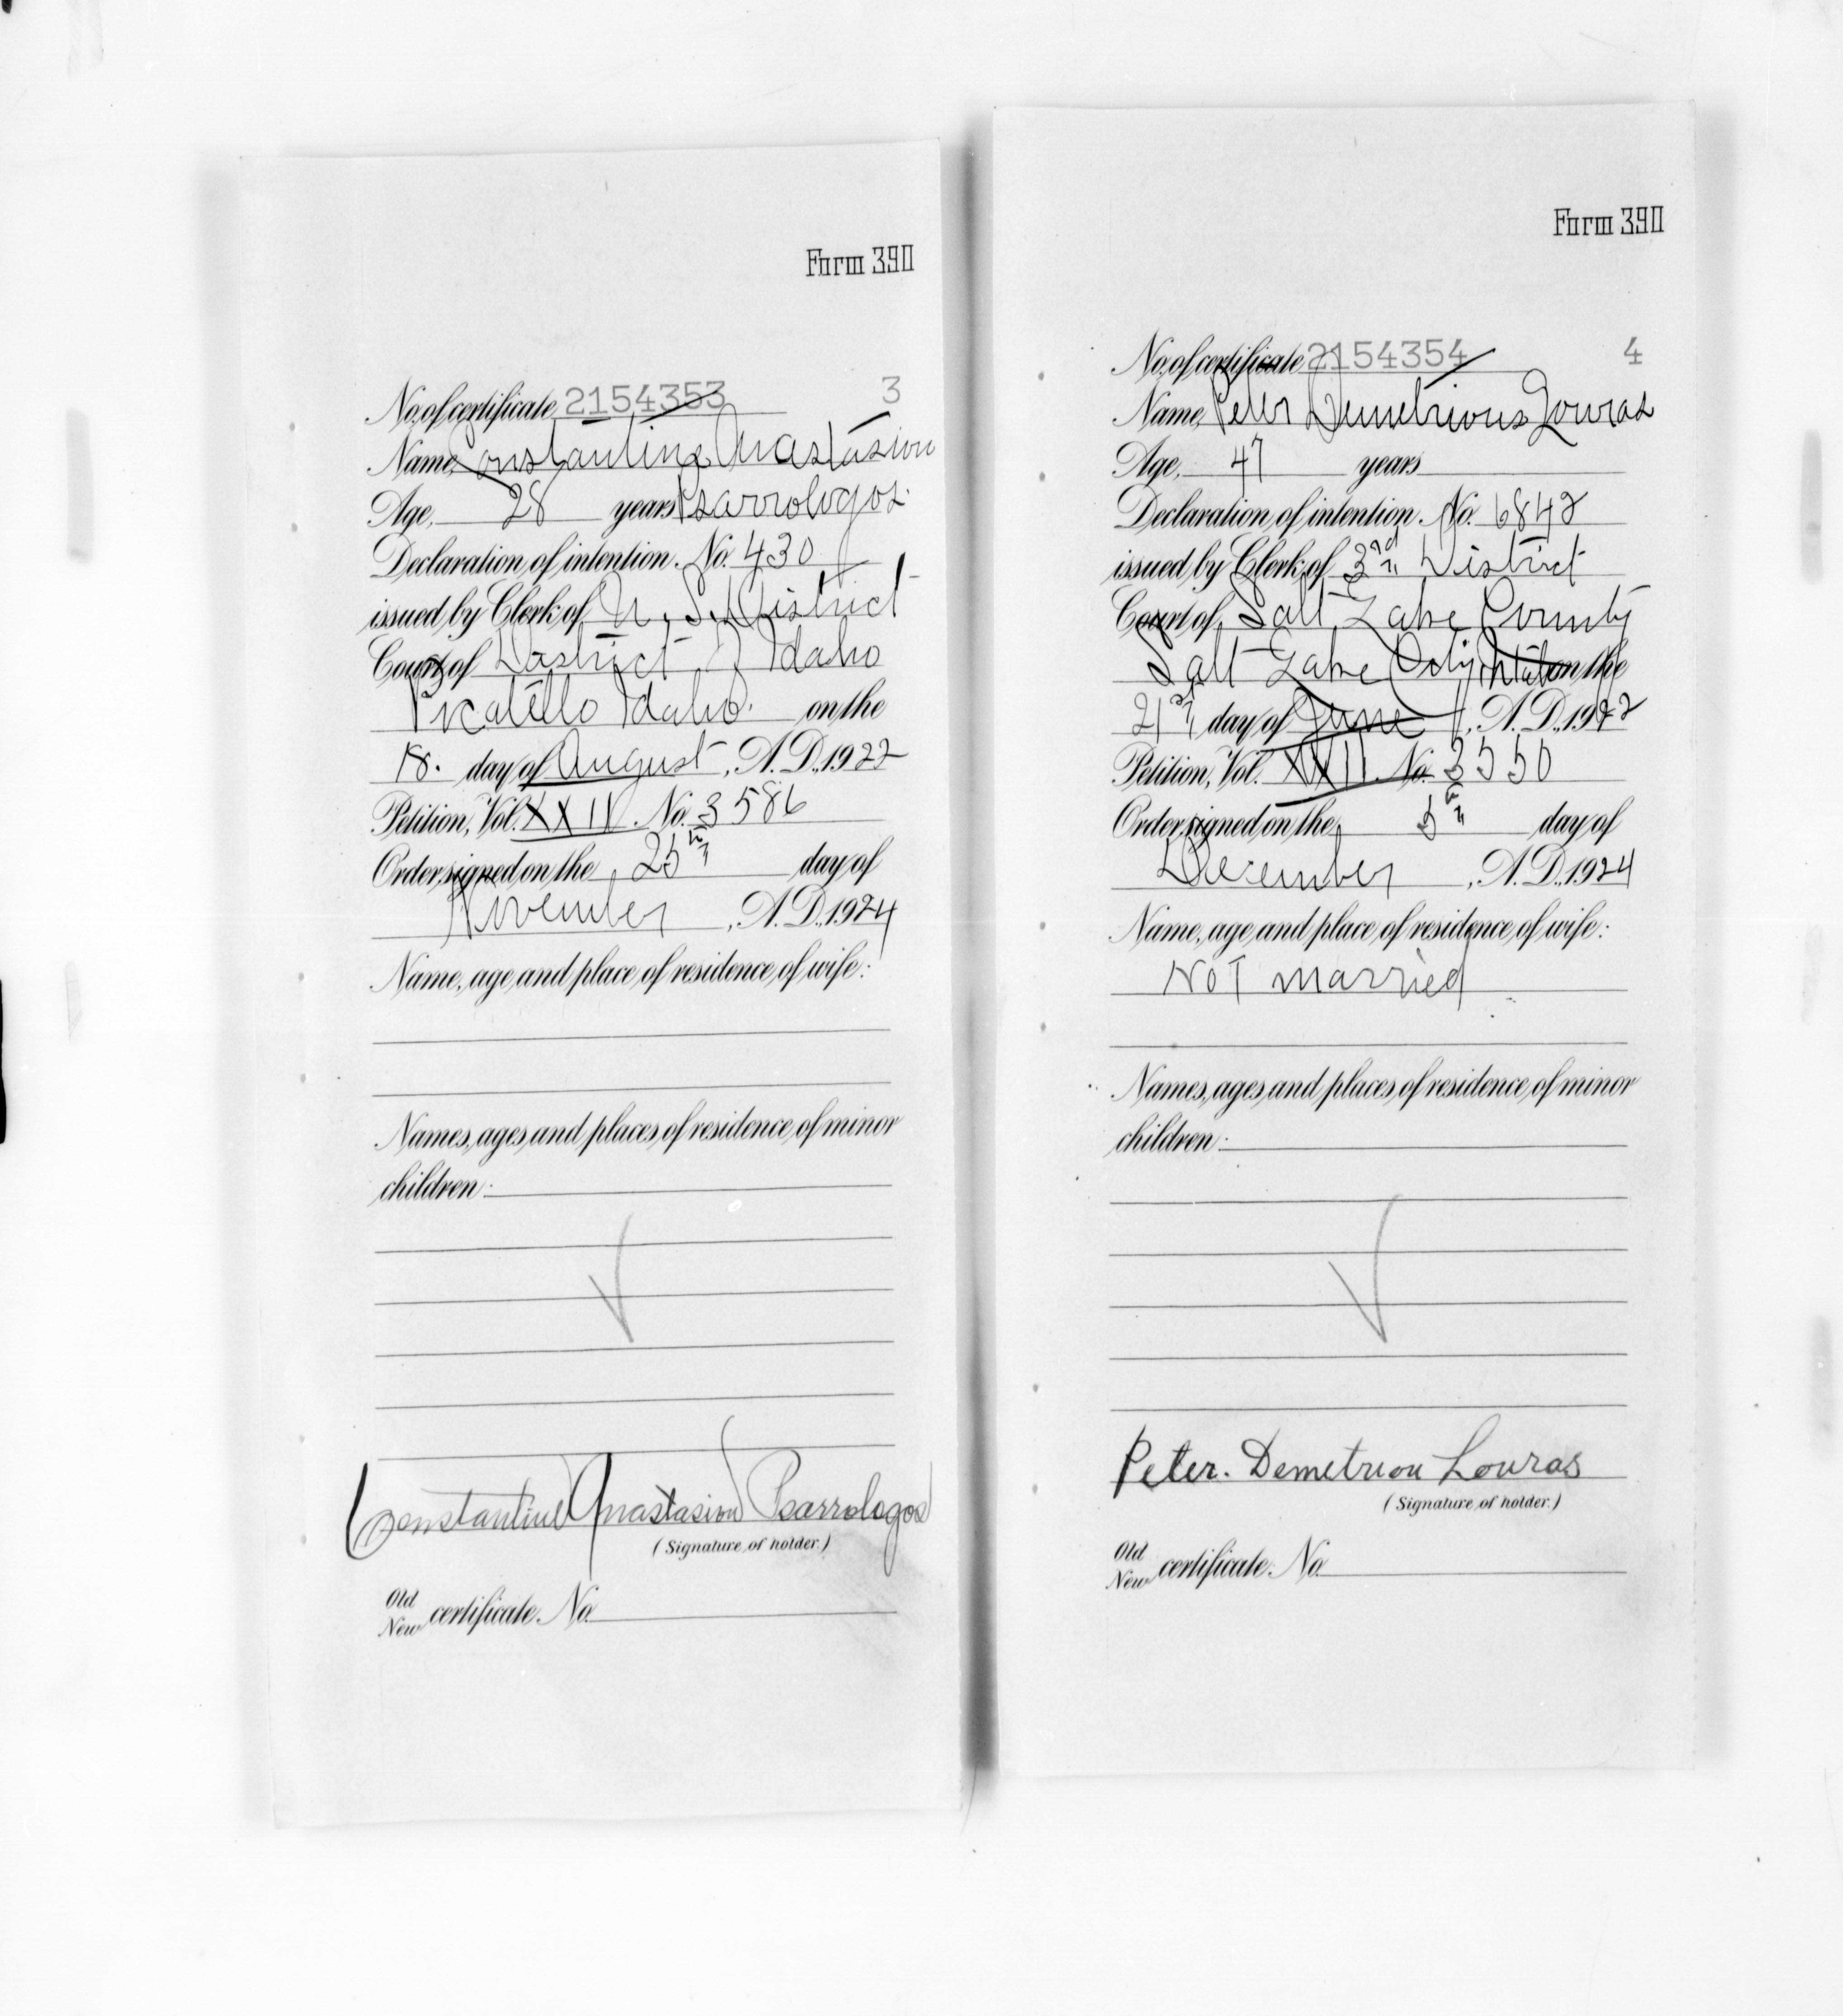 Form 390
No. of certificate 2154353 3
Name, Constantine Anastasiou
Age, 28 years Psarrologos.
Declaration of intention No. 430
issued by Clerk of U. S. District
Court of District of Idaho
Pocatello Idaho. on the
18. day of August, A. D., 1922
Petition, Vol. XXII No. 3586
Order signed on the 25th day of
November, A. D., 1924
Name, age and place of residence of wife:
Names, ages and places of residence of minor
children:
Constantine Anastasiou Psarrologos
(Signature of holder.)
Old
New certificate No.
Form 390
No. of certificate 2154354 4
Name, Peter Demetrious Louras
Age, 47 years
Declaration of intention No. 6842
issued by Clerk of 3rd District
Court of Salt Lake County
Salt Lake City Utah on the
21st day of June, A. D., 1922
Petition, Vol. XXII No. 3550
Order signed on the 5th day of
December, A. D., 1924
Name, age and place of residence of wife:
NOT married
Names, ages and places of residence of minor
children:
Peter. Demetriou Louras
(Signature of holder.)
Old
New certificate No.